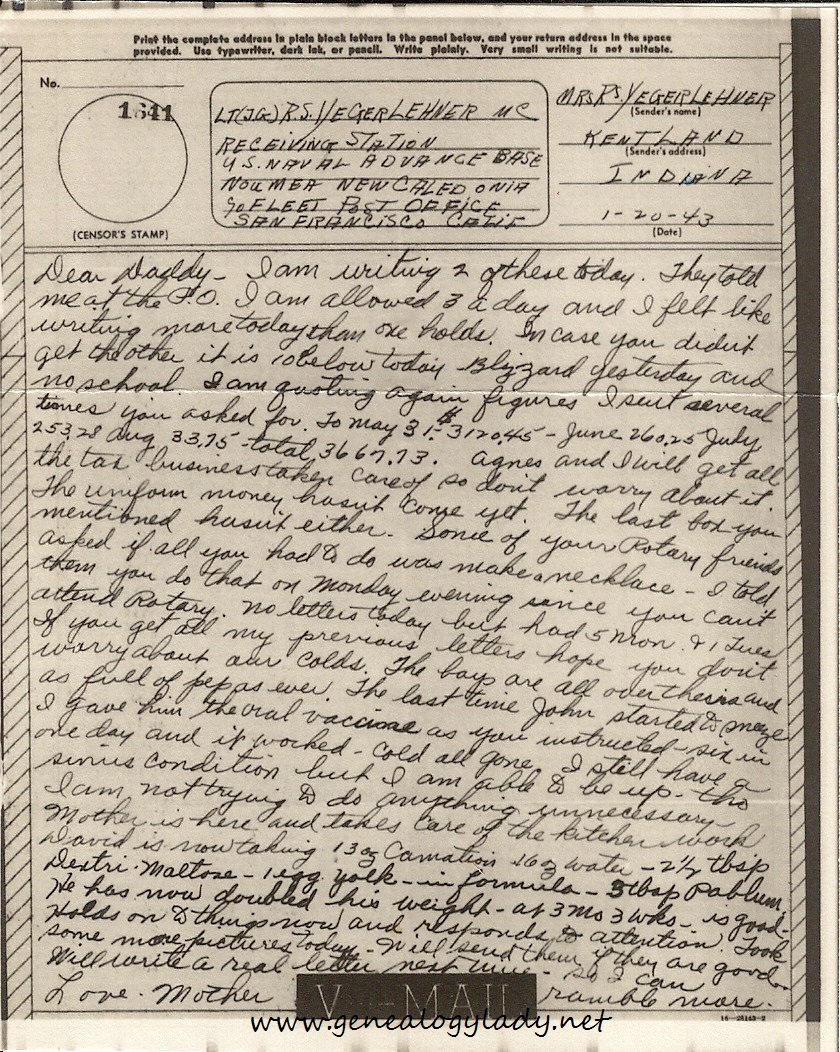 Print the complete address in plain block letters in the panel below, and your return address in the space
provided. Use typewriter, dark ink, or pencil. Write plainly. Very small writing is not suitable.
No.
1641
(CENSOR'S STAMP)
LT(JG) R.S. YEGERLEHNER MC
RECEIVING STATION
U.S. NAVAL ADVANCE BASE
NOUMEA NEW CALEDONIA
c/o FLEET POST OFFICE
SAN FRANCISCO CALIF
MRS R.S. YEGERLEHNER
(Sender's name)
KENTLAND
(Sender's address)
INDIANA
1-20-43
(Date)
Dear Daddy - I am writing 2 of these today. They told
me at the P.O. I am allowed 3 a day and I felt like
writing more today than one holds. In case you didn't
get the other it is 10 below today - Blizzard yesterday and
no school. I am quoting again figures I sent several
times you asked for. To May 31 - $3120.45 - June 260.25 July
253.28 Aug 33.75 - total 3667.73. Agnes and I will get all
the tax business taken care of so don't worry about it.
The uniform money hasn't come yet. The last box you
mentioned hasn't either. Some of your Rotary friends
asked if all you had to do was make a necklace - I told
them you do that on Monday evening since you can't
attend Rotary. No letters today but had 5 Mon. & 1 Tues
If you get all my previous letters hope you don't
worry about our colds. The boys are all over theirs and
as full of pep as ever. The last time John started to sneeze
I gave him the oral vaccine as you instructed - six in
one day and it worked - cold all gone. I still have a
sinus condition but I am able to be up - tho
I am not trying to do anything unnecessary -
Mother is here and takes care of the kitchen work
David is now taking 13 oz Carnation 16 oz water - 2½ tbsp
Dextri-Maltose - 1 egg yolk - in formula - 3 tbsp Pablum.
He has now doubled his weight - at 3 mo 3 wks - is good -
Holds on to things now and responds to attention. Took
some more pictures today - Will send them if they are good -
Will write a real letter next time - so I can
Love - Mother ramble more.
V-MAIL
www.genealogylady.net